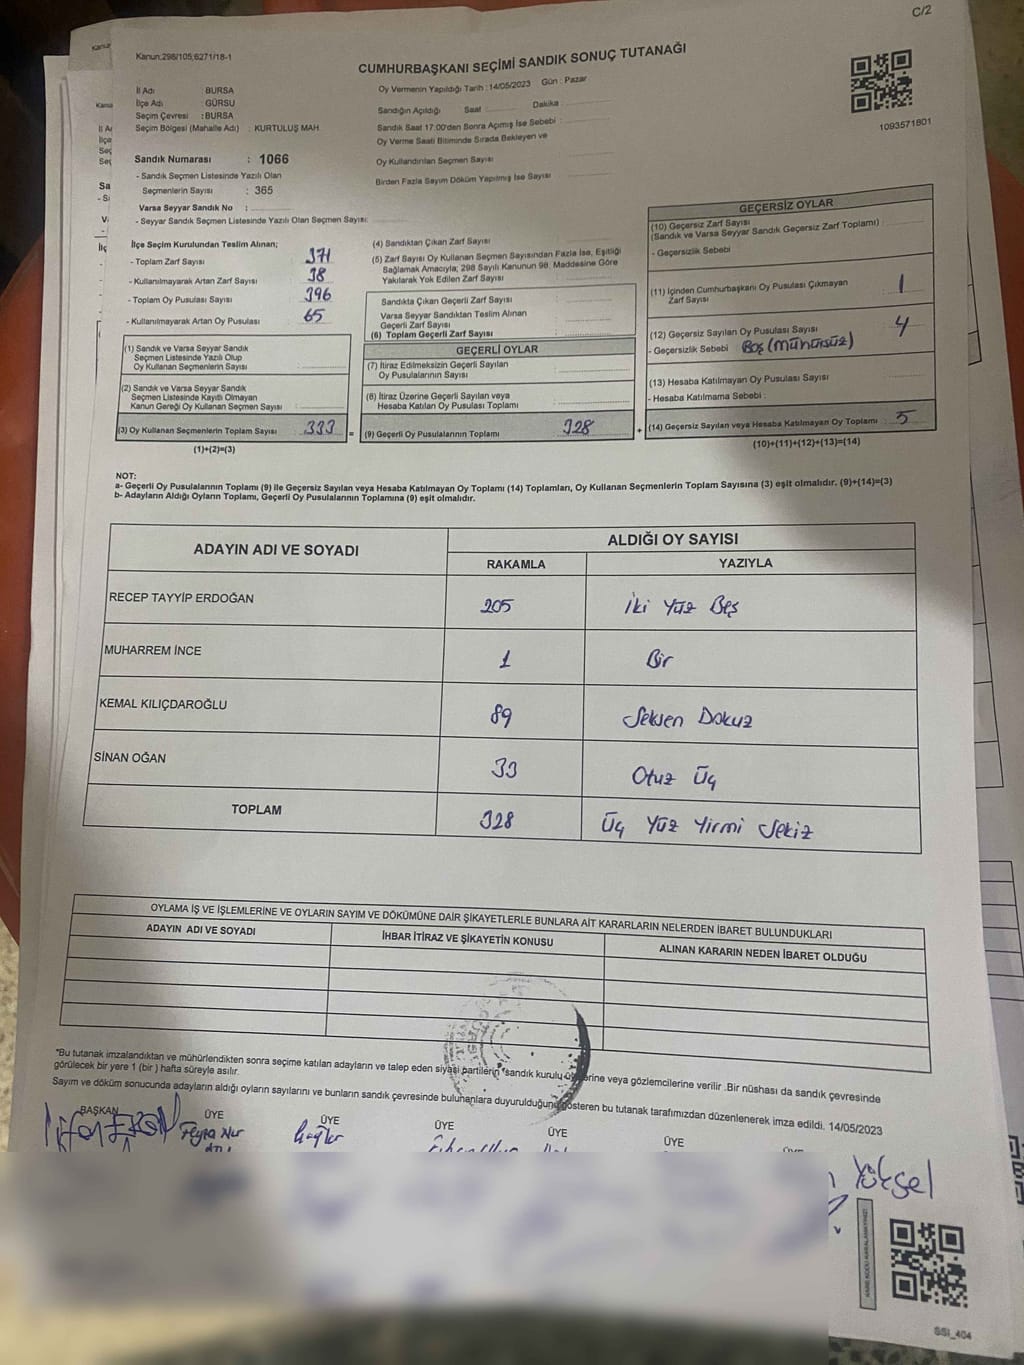 C/2
Kanun;298/105;6271/18-1
CUMHURBAŞKANI SEÇİMİ SANDIK SONUÇ TUTANAĞI
İl Adı BURSA
İlçe Adı : GÜRSU
Seçim Çevresi : BURSA
Seçim Bölgesi (Mahalle Adı) : KURTULUŞ MAH
Oy Vermenin Yapıldığı Tarih : 14/05/2023 Gün : Pazar
Sandığın Açıldığı Saat Dakika
Sandık Saat 17:00'den Sonra Açımış İse Sebebi :
Oy Verme Saati Bitiminde Sırada Bekleyen ve
Oy Kullandırılan Seçmen Sayısı
Birden Fazla Sayım Döküm Yapılmış İse Sayısı
1093571801
Sandık Numarası : 1066
- Sandık Seçmen Listesinde Yazılı Olan
Seçmenlerin Sayısı : 365
Varsa Seyyar Sandık No :
- Seyyar Sandık Seçmen Listesinde Yazılı Olan Seçmen Sayısı:
İlçe Seçim Kurulundan Teslim Alınan;
- Toplam Zarf Sayısı 371
- Kullanılmayarak Artan Zarf Sayısı 38
- Toplam Oy Pusulası Sayısı 396
- Kullanılmayarak Artan Oy Pusulası 65
(1) Sandık ve Varsa Seyyar Sandık
Seçmen Listesinde Yazılı Olup
Oy Kullanan Seçmenlerin Sayısı
(2) Sandık ve Varsa Seyyar Sandık
Seçmen Listesinde Kayıtlı Olmayan
Kanun Gereği Oy Kullanan Seçmen Sayısı
(3) Oy Kullanan Seçmenlerin Toplam Sayısı 333 =
(1)+(2)=(3)
(4) Sandıktan Çıkan Zarf Sayısı
(5) Zarf Sayısı Oy Kullanan Seçmen Sayısından Fazla İse, Eşitliği
Sağlamak Amacıyla; 298 Sayılı Kanunun 98. Maddesine Göre
Yakılarak Yok Edilen Zarf Sayısı
Sandıkta Çıkan Geçerli Zarf Sayısı
Varsa Seyyar Sandıktan Teslim Alınan
Geçerli Zarf Sayısı
(6) Toplam Geçerli Zarf Sayısı
GEÇERLİ OYLAR
(7) İtiraz Edilmeksizin Geçerli Sayılan
Oy Pusulalarının Sayısı
(8) İtiraz Üzerine Geçerli Sayılan veya
Hesaba Katılan Oy Pusulası Toplamı
(9) Geçerli Oy Pusulalarının Toplamı 328 +
GEÇERSİZ OYLAR
(10) Geçersiz Zarf Sayısı
(Sandık ve Varsa Seyyar Sandık Geçersiz Zarf Toplamı) :
- Geçersizlik Sebebi
(11) İçinden Cumhurbaşkanı Oy Pusulası Çıkmayan
Zarf Sayısı 1
(12) Geçersiz Sayılan Oy Pusulası Sayısı 4
- Geçersizlik Sebebi Boş (Mühürsüz)
(13) Hesaba Katılmayan Oy Pusulası Sayısı
- Hesaba Katılmama Sebebi :
(14) Geçersiz Sayılan veya Hesaba Katılmayan Oy Toplamı : 5
(10)+(11)+(12)+(13)=(14)
NOT:
a- Geçerli Oy Pusulalarının Toplamı (9) ile Geçersiz Sayılan veya Hesaba Katılmayan Oy Toplamı (14) Toplamları, Oy Kullanan Seçmenlerin Toplam Sayısına (3) eşit olmalıdır. (9)+(14)=(3)
b- Adayların Aldığı Oyların Toplamı, Geçerli Oy Pusulalarının Toplamına (9) eşit olmalıdır.
ADAYIN ADI VE SOYADI ALDIĞI OY SAYISI
RAKAMLA YAZIYLA
RECEP TAYYİP ERDOĞAN 205 İki Yüz Beş
MUHARREM İNCE 1 Bir
KEMAL KILIÇDAROĞLU 89 Seksen Dokuz
SİNAN OĞAN 33 Otuz Üç
TOPLAM 328 Üç Yüz Yirmi Sekiz
OYLAMA İŞ VE İŞLEMLERİNE VE OYLARIN SAYIM VE DÖKÜMÜNE DAİR ŞİKAYETLERLE BUNLARA AİT KARARLARIN NELERDEN İBARET BULUNDUKLARI
ADAYIN ADI VE SOYADI İHBAR İTİRAZ VE ŞİKAYETİN KONUSU ALINAN KARARIN NEDEN İBARET OLDUĞU
"Bu tutanak imzalandıktan ve mühürlendikten sonra seçime katılan adayların ve talep eden siyasi partilerin sandık kurulu üyelerine veya gözlemcilerine verilir .Bir nüshası da sandık çevresinde
görülecek bir yere 1 (bir ) hafta süreyle asılır.
Sayım ve döküm sonucunda adayların aldığı oyların sayılarını ve bunların sandık çevresinde bulunanlara duyurulduğunu gösteren bu tutanak tarafımızdan düzenlenerek imza edildi. 14/05/2023
BAŞKAN ÜYE ÜYE ÜYE ÜYE ÜYE
Yüksel
SSI_404